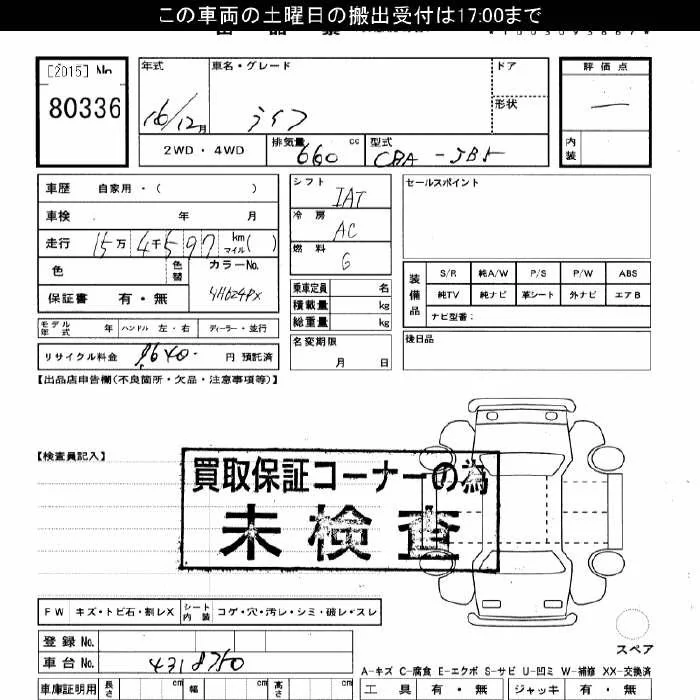 この車両の土曜日の搬出受付は17:00まで
[2015] No
80336
年式
16/12月
車名・グレード
ライフ
ドア
形状
評価点
内装
2WD・4WD
排気量 660 cc
型式 CBA-JB5
車歴 自家用・( )
車検 年 月
走行 15万4千597 km マイル( )
色
色替
カラーNo.
YH624PX
保証書 有・無
モデル年式 年 ハンドル 左・右 ディーラー・並行
リサイクル料金 9640- 円 預託済
シフト IAT
冷房 AC
燃料 G
乗車定員 名
積載量 kg
総重量 kg
名変期限
月 日
セールスポイント
装備品
S/R 純A/W P/S P/W ABS
純TV 純ナビ 革シート 外ナビ エアB
ナビ型番:
後日品
【出品店申告欄(不良箇所・欠品・注意事項等)】
【検査員記入】
買取保証コーナーの為
未検査
FW キズ・トビ石・割レX シート内装 コゲ・穴・汚レ・シミ・破レ・スレ
登録No.
車台No. 4318750
スペア
A-キズ C-腐食 E-エクボ S-サビ U-凹ミ W-補修 XX-交換済
車庫証明用 長さ cm 幅 cm 高さ cm
工具 有・無 ジャッキ 有・無